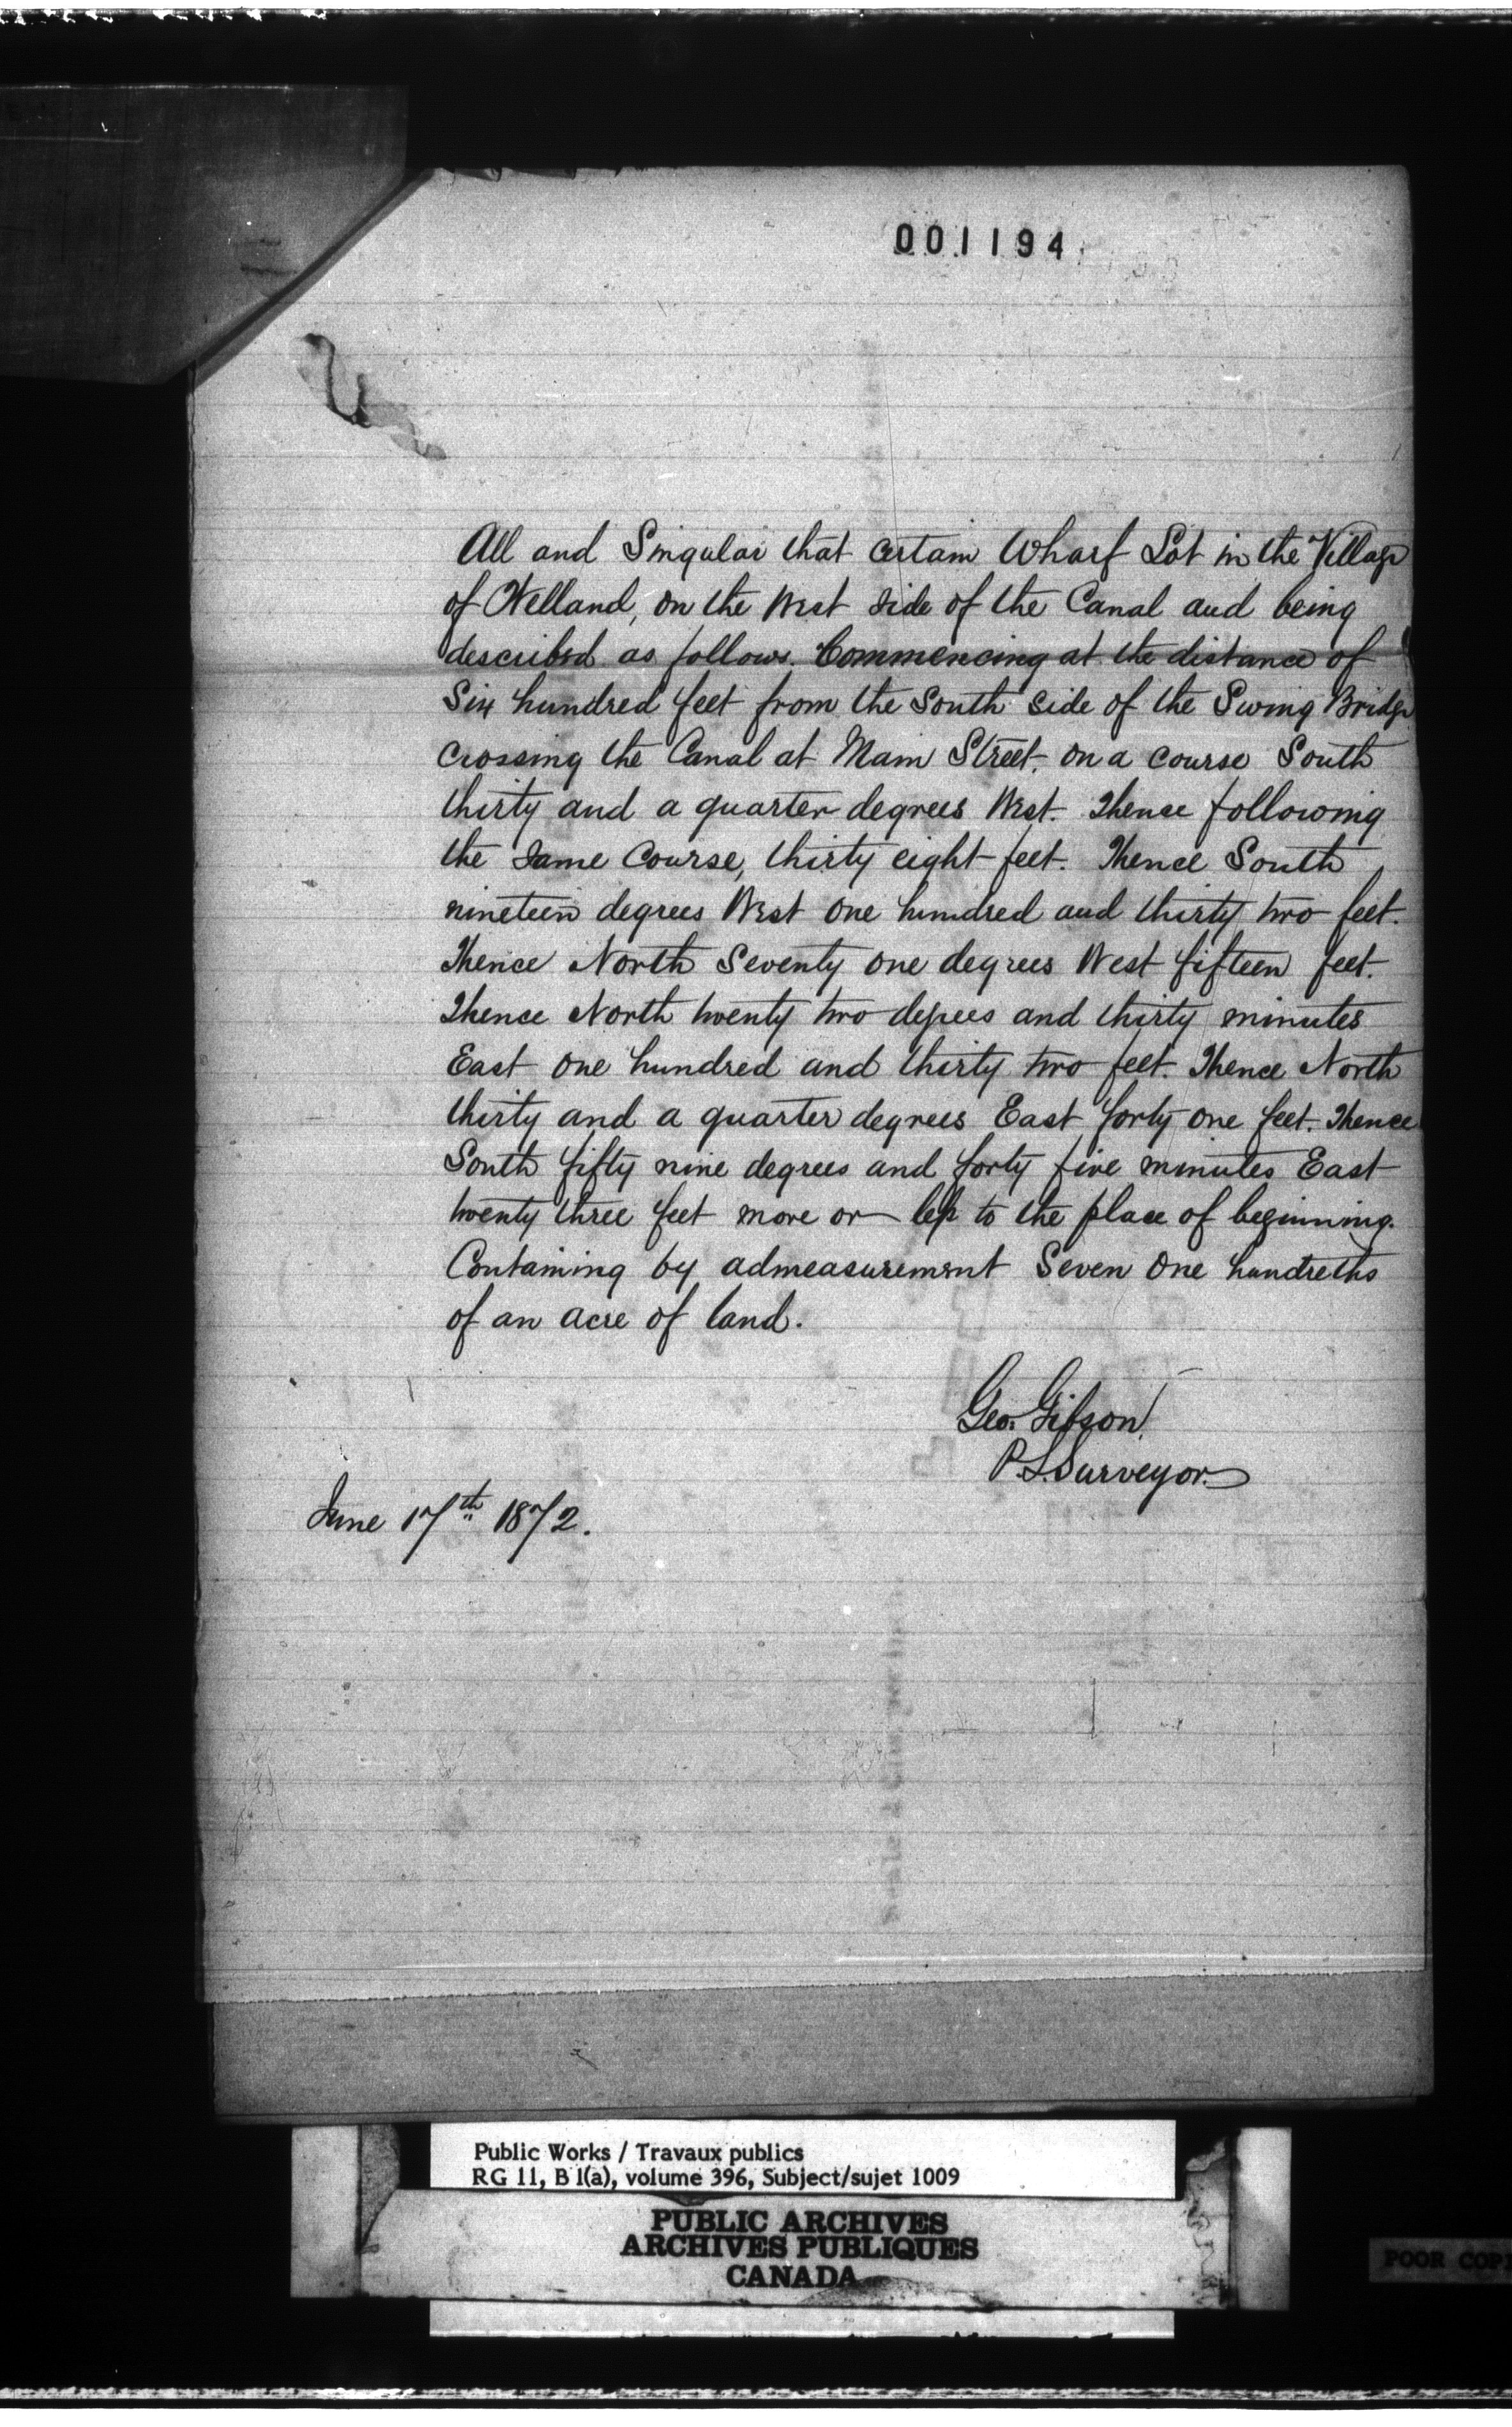 001194
All and Singular that certain Wharf Lot in the Village
of Welland, on the West side of the Canal and being
described as follows. Commencing at the distance of
Six hundred feet from the South side of the Swing Bridge
crossing the Canal at Main Street, on a course South
thirty and a quarter degrees West. Thence following
the same Course, thirty eight feet. Thence South
nineteen degrees West one hundred and thirty two feet.
Thence North Seventy one degrees West fifteen feet.
Thence North twenty two degrees and thirty minutes
East one hundred and thirty two feet. Thence North
thirty and a quarter degrees East forty one feet. Thence
South fifty nine degrees and forty five minutes East
twenty three feet more or less to the place of beginning.
Containing by admeasurement Seven One hundreths
of an acre of land.
Geo. Gibson
P.L. Surveyor.
June 17th 1872.
Public Works / Travaux publics
RG 11, B 1(a), volume 396, Subject/sujet 1009
PUBLIC ARCHIVES
ARCHIVES PUBLIQUES
CANADA
POOR COP